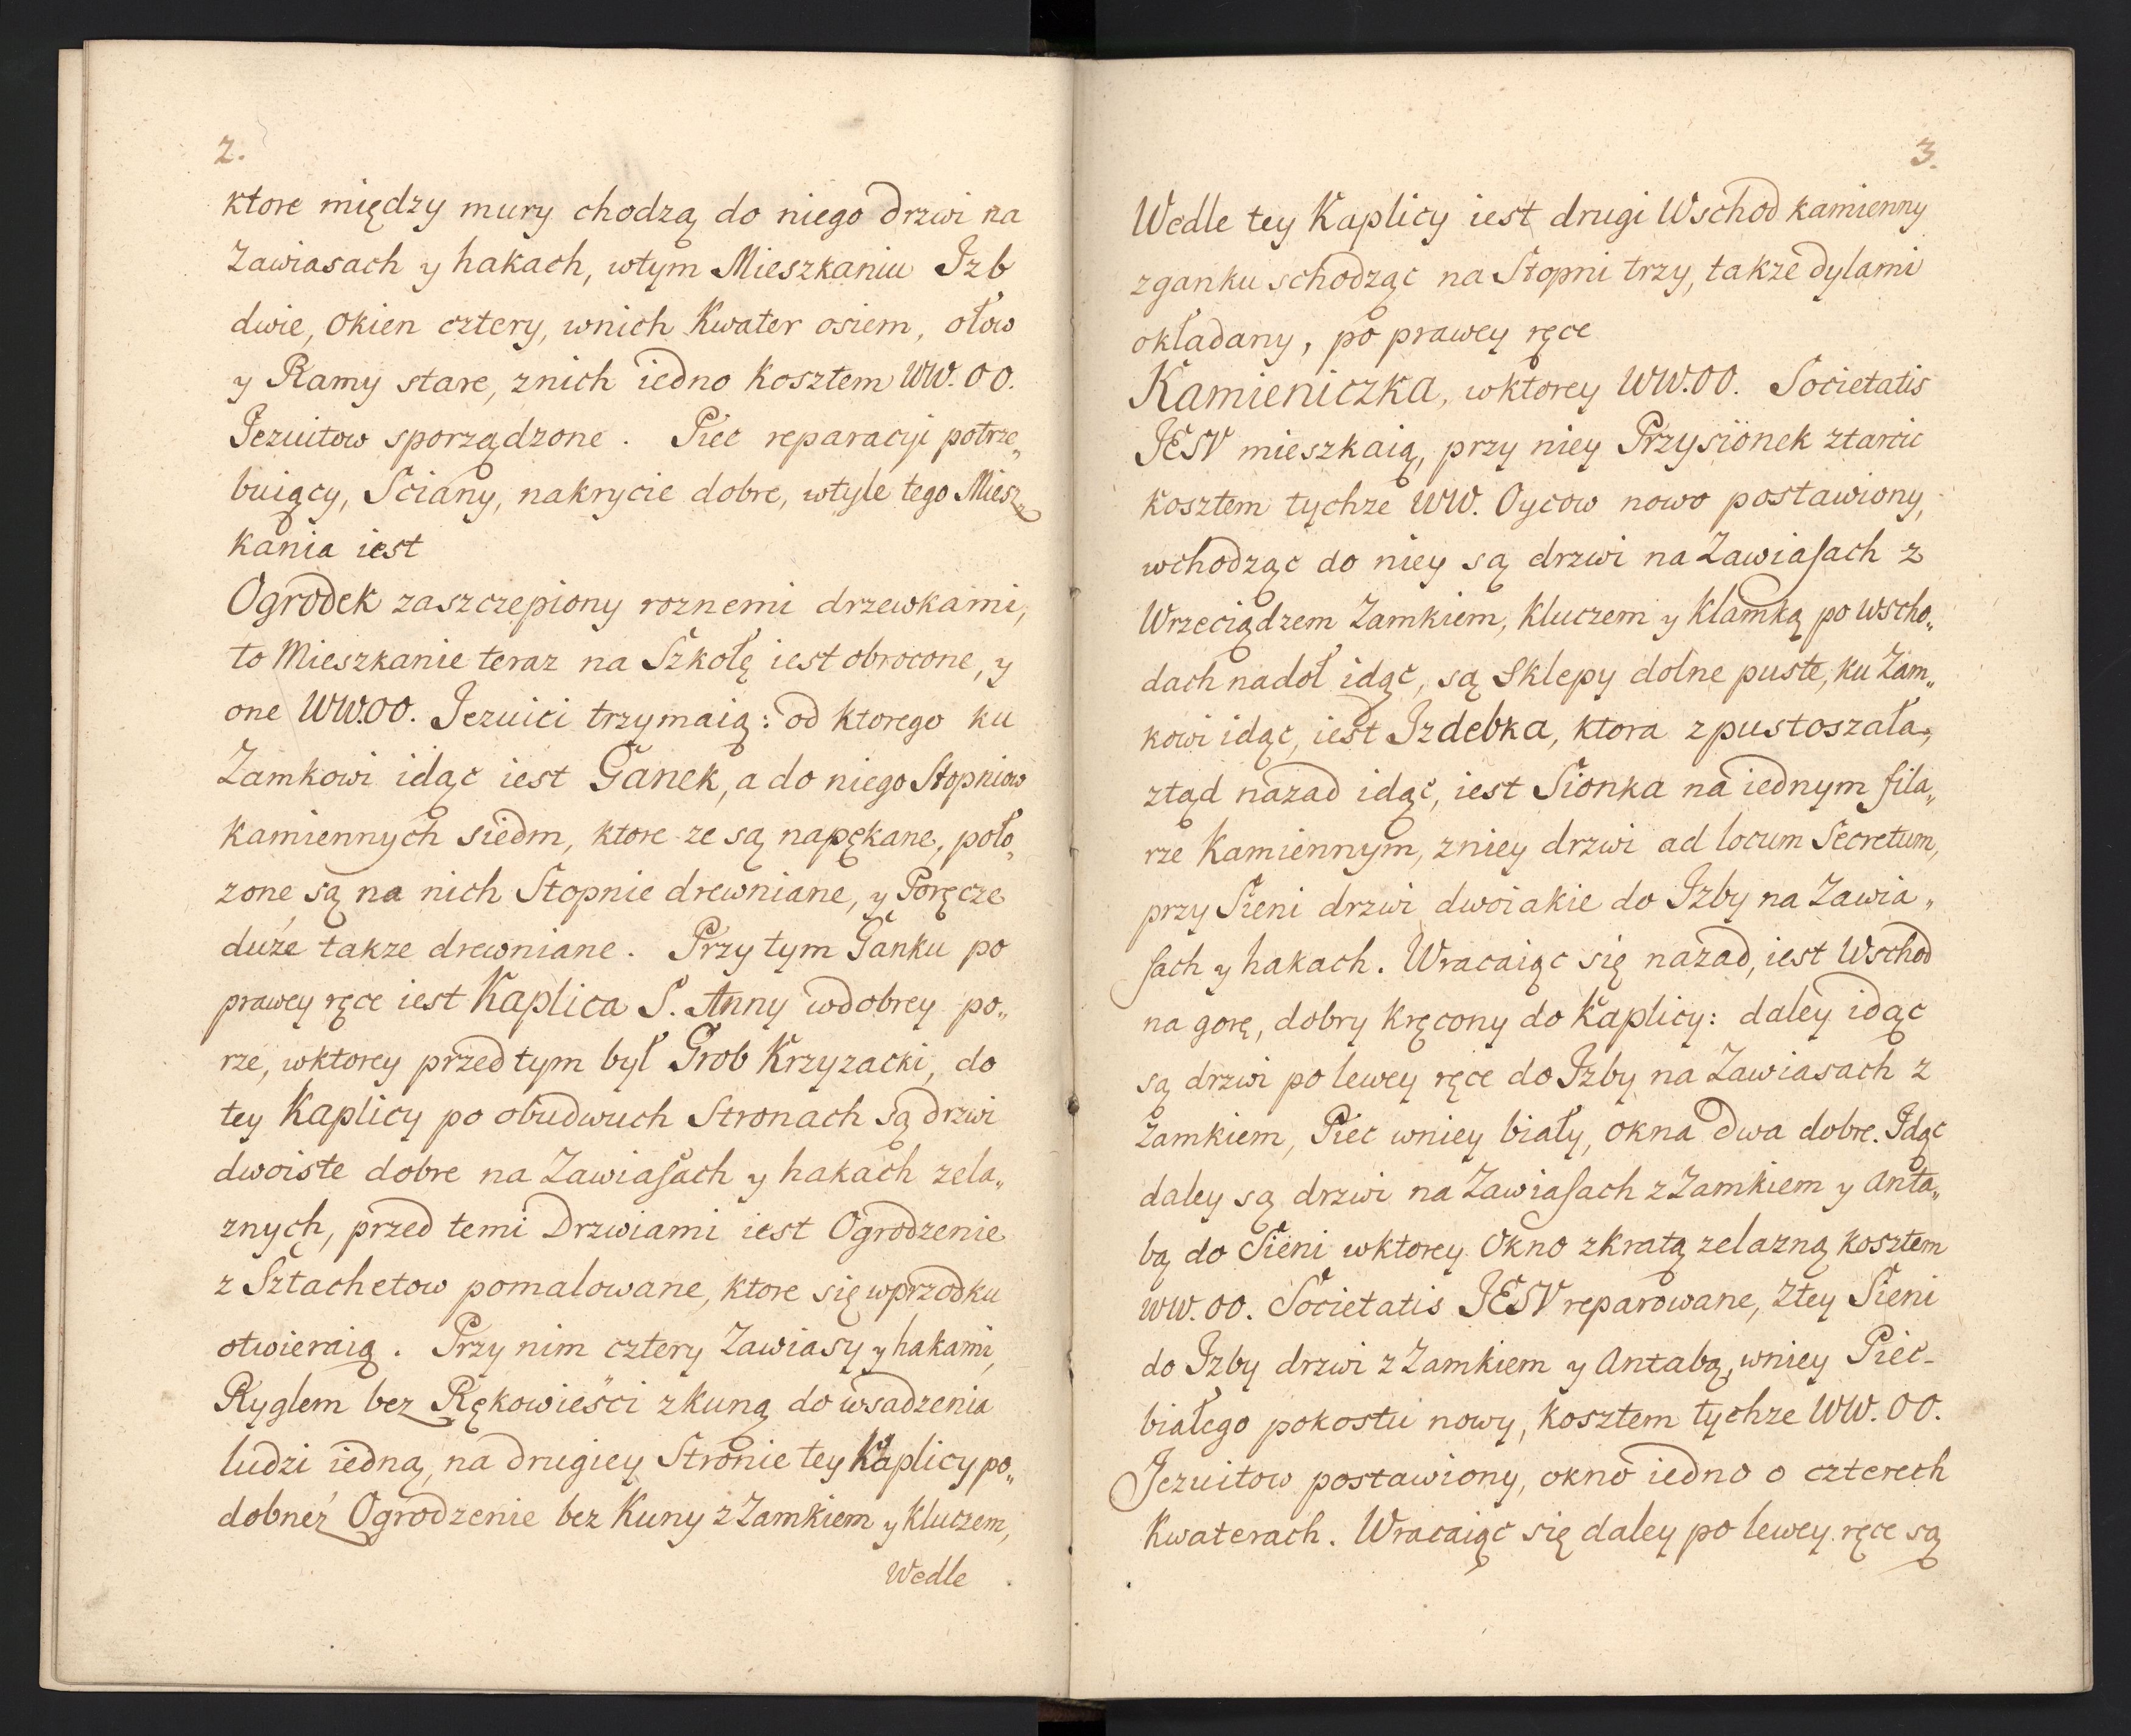 2.
ktore między mury chodzą do niego drzwi na
Zawiasach y hakach, wtym Mieszkaniu Izb
dwie, okien cztery, wnich Kwater osiem, ołow
y Ramy stare, znich iedno Kosztem WW. OO.
Jezuitow sporządzone. Piec reparacyi potrze„
buiący, Sciany, nakrycie dobre, wtyle tego Miesz„
kania iest
Ogrodek zaszczepiony roznemi drzewkami,
to Mieszkanie teraz na Szkołę iest obrocone, y
one WW.OO. Jezuici trzymaią: od ktorego ku
Zamkowi idąc iest Ganek, a do niego Stopniow
kamiennych siedm, ktore ze są napękane, poło„
zone są na nich Stopnie drewniane, y Poręcze
duże takze drewniane. Przy tym Ganku po
prawey ręce iest Kaplica S. Anny wdobrey po„
rze, wktorey przed tym był Grob Krzyzacki, do
tey Kaplicy po obudwuch Stronach są drzwi
dwoiste dobre na Zawiaſach y hakach zela„
znych, przed temi Drzwiami iest Ogrodzenie
z Sztachetow pomalowane, ktore się wprzodku
otwieraią. Przy nim cztery Zawiasy y hakami,
Ryglem bez Rękowieści zkuną do wsadzenia
ludzi iedną, na drugiey Stronie tey Kaplicy po„
dobneź Ogrodzenie bez Kuny z Zamkiem y Kluczem,
Wedle
3.
Wedle tey Kaplicy iest drugi Wschod kamienny
zganku schodząc na Stopni trzy, takze dylami
okładany, po prawey ręce
Kamieniczka, wktorey WW.OO. Societatis
JESV mieszkaią, przy niey Przysionek ztarcic
kosztem tychze WW. Oycow nowo postawiony,
wchodząc do niey są drzwi na Zawiaſach z
Wrzeciądzem Zamkiem, Kluczem y Klamką po wscho„
dach nadoł idąc, są Sklepy dolne puste, ku Zam„
kowi idąc, iest Izdebka, ktora zpustoszała,
ztąd nazad idąc, iest Sionka na iednym fila„
rze Kamiennym, zniey drzwi ad locum Secretum,
przy Sieni drzwi dwoiakie do Izby na Zawia„
ſach y hakach. Wracaiąc się nazad, iest Wschod
na gorę, dobry kręcony do Kaplicy: daley idąc
są drzwi po lewey ręce do Izby na Zawiasach z
Zamkiem, Piec wniey biały, okna dwa dobre. Idąc
daley są drzwi na Zawiaſach z Zamkiem y Anta„
bą do Sieni wktorey Okno zkratą zelazną kosztem
WW. OO. Societatis JESV reparowane, Ztey Sieni
do Izby drzwi z Zamkiem y Antabą, wniey Piec
białego pokostu nowy, kosztem tychze WW. OO.
Jezuitow postawiony, okno iedno o czterech
Kwaterach. Wracaiąc się daley po lewey ręce są